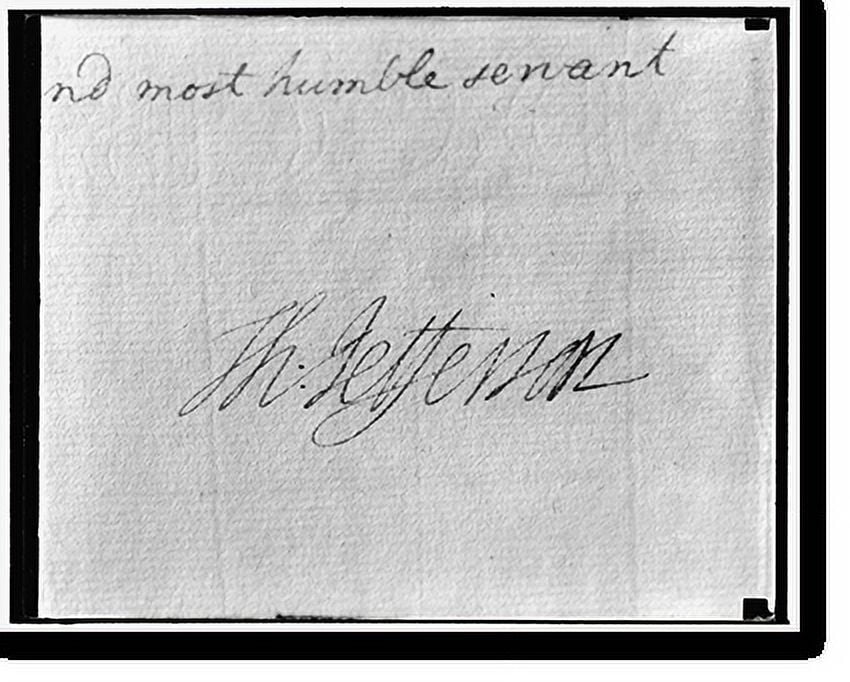 nd most humble servant
Th: Jefferson